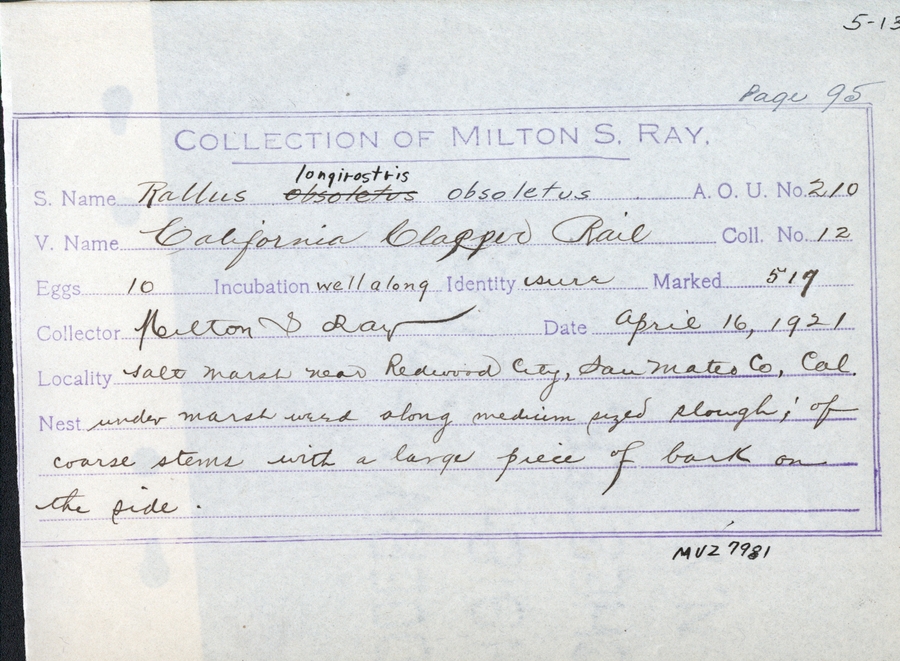 5-13
Page 95
COLLECTION OF MILTON S. RAY.
longirostris
S. Name Rallus obsoletus obsoletus A. O. U. No. 210
V. Name California Clapper Rail Coll. No. 12
Eggs 10 Incubation well along Identity sure Marked 519
Collector Milton S Ray Date April 16, 1921
Locality salt marsh near Redwood City, San Mateo Co, Cal.
Nest under marsh weed along medium sized slough; of
coarse stems with a large piece of bark on
the side.
MVZ 7981